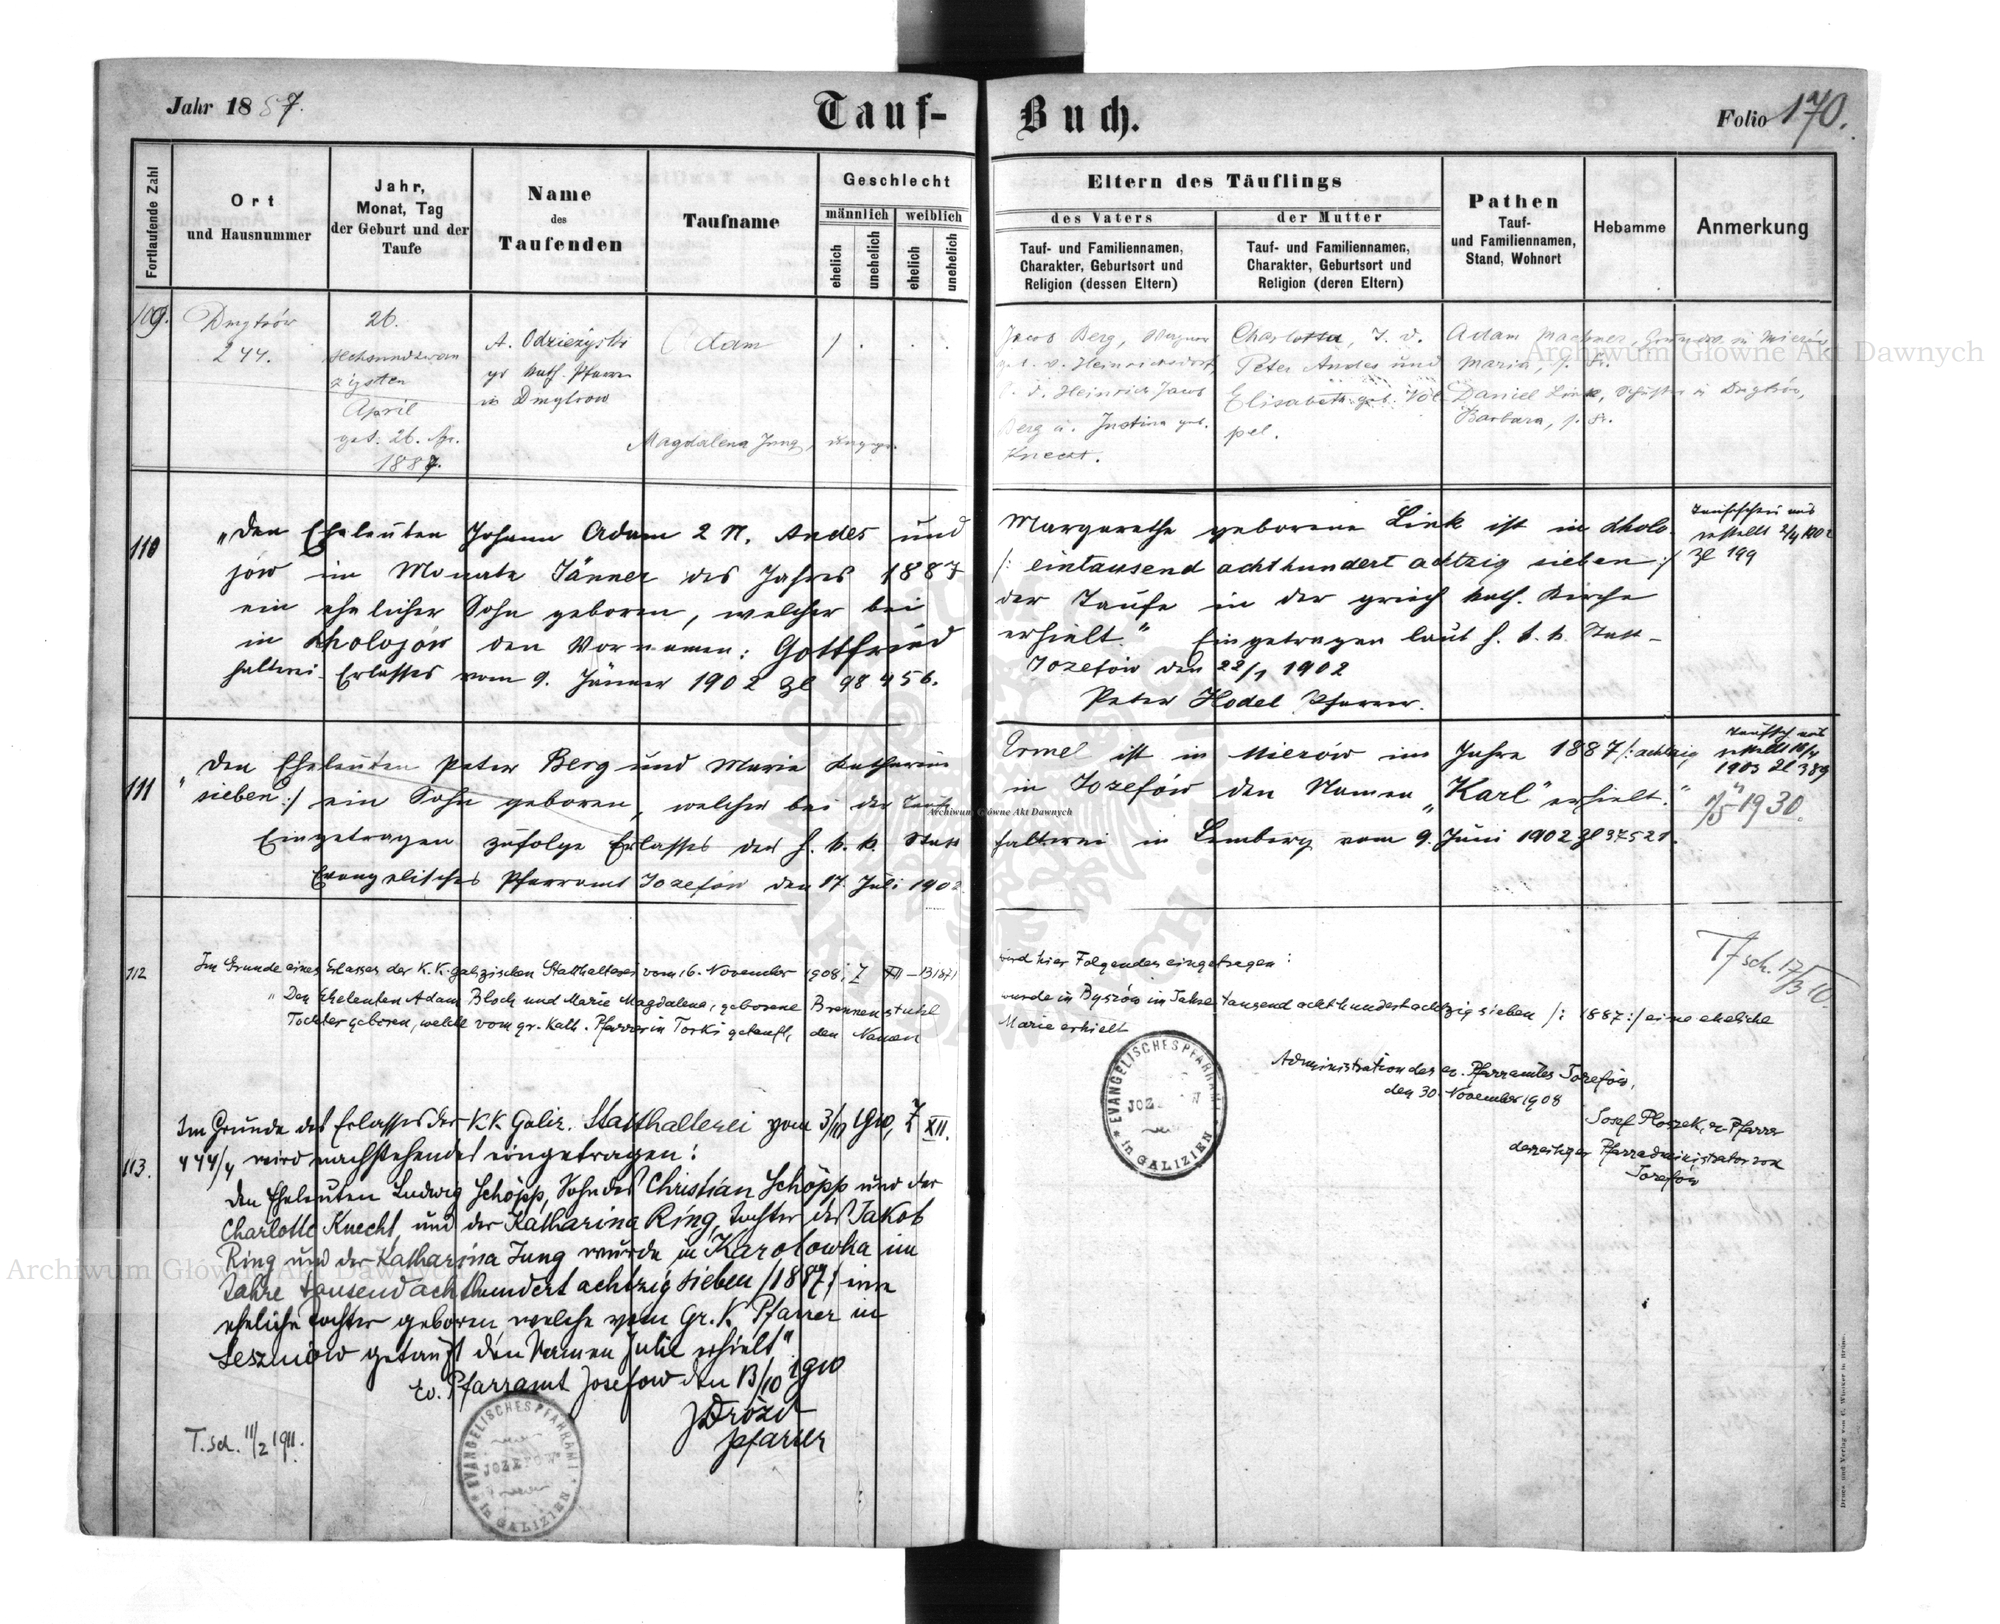 Jahr 1887.
Tauf-Buch.
Folio 170.
Fortlaufende Zahl
Ort
und Hausnummer
Jahr,
Monat, Tag
der Geburt und der
Taufe
Name
des
Taufenden
Taufname
Geschlecht
männlich
weiblich
ehelich
unehelich
ehelich
unehelich
Eltern des Täuflings
des Vaters
der Mutter
Tauf- und Familiennamen,
Charakter, Geburtsort und
Religion (dessen Eltern)
Tauf- und Familiennamen,
Charakter, Geburtsort und
Religion (deren Eltern)
Pathen
Tauf-
und Familiennamen,
Stand, Wohnort
Hebamme
Anmerkung
109.
Dmytrów
244.
26.
sechsundzwan
zigsten
April
get. 26. Apr.
1887.
A. Odzieżyński
gr kath. Pfarrer
in Dmytrow
Adam
1
Magdalena Jung,
Jacob Berg,
geb. v. Heinrichsdorf
S. d. Heinrich Jacob
Berg u. Justina geb.
Knecht.
Charlotta, T. d.
Peter Andes und
Elisabeth geb. Völ-
pel.
Adam Machner, Grundw. in Mierów
Maria, s. Fr.
Daniel Link, Schuster in Dmytrów,
Barbara, s. Fr.
110
„Den Eheleuten Johann Adam 2 N. Andes und Margarethe geborene Link ist in Cholo-
jów im Monate Jänner des Jahres 1887 /: eintausend achthundert achtzig sieben :/
ein ehelicher Sohn geboren, welcher bei der Taufe in der griech kath. Kirche
in Cholojów den Vornamen: Gottfried erhielt." Eingetragen laut h. k. k. Statt-
halterei-Erlasses vom 9. Jänner 1902 Zl 98456. Jozefów den 22/1 1902
Peter Hodel Pfarrer.
Taufschein aus
gestellt 2/4 1902
Zl 199
111
„Den Eheleuten Peter Berg und Maria Katharina Ermel ist in Mierów im Jahre 1887 /: achtzig
sieben :/ ein Sohn geboren, welcher bei der Taufe in Jozefów den Namen „Karl" erhielt."
Eingetragen zufolge Erlasses der h. k. k. Statt halterei in Lemberg vom 9. Juni 1902 Zl 37521.
Evangelisches Pfarramt Jozefów den 17. Juli 1902
1903 Zl 389
1/5 1930.
112
Im Grunde eines Erlasses der K.K. galizischen Statthalterei vom 16. November 1908, Z XII – 1387/1 wird hier Folgendes eingetragen:
„Den Eheleuten Adam Bloch und Marie Magdalena, geborene Brennenstuhl wurde in Byszów im Jahre tausend achthundert achtzig sieben /: 1887 :/ eine eheliche
Tochter geboren, welche vom gr. kath. Pfarrer in Torki getauft, den Namen Marie erhielt
Administration des ev. Pfarramtes Jozefów,
den 30. November 1908
Josef Ploszek, ev. Pfarrer
derzeitiger Pfarradministrator von
Jozefów
T sch. 17/3 10.
EVANGELISCHES PFARRAMT
JOZEFOW
in GALIZIEN
113.
Im Grunde des Erlasses der KK Galiz. Statthalterei vom 3/10 1910, Z XII.
444/4 wird nachstehendes eingetragen:
Den Eheleuten Ludwig Schöpp, Sohn des Christian Schöpp und der
Charlotte Knecht, und der Katharina Ring, Tochter des Jakob
Ring und der Katharina Jung wurde in Karolowka im
Jahre tausend achthundert achtzig sieben /1887:/ eine
eheliche Tochter geboren welche vom Gr. K. Pfarrer in
Leszniow getauft den Namen Julie erhielt"
Ev. Pfarramt Josefow den 13/10 1910
JDrozd
Pfarrer
T. sch. 11/2 1911.
EVANGELISCHES PFARRAMT
JOZEFOW
in GALIZIEN
Archiwum Główne Akt Dawnych
Archiwum Główne Akt Dawnych
Archiwum Główne Akt Dawnych